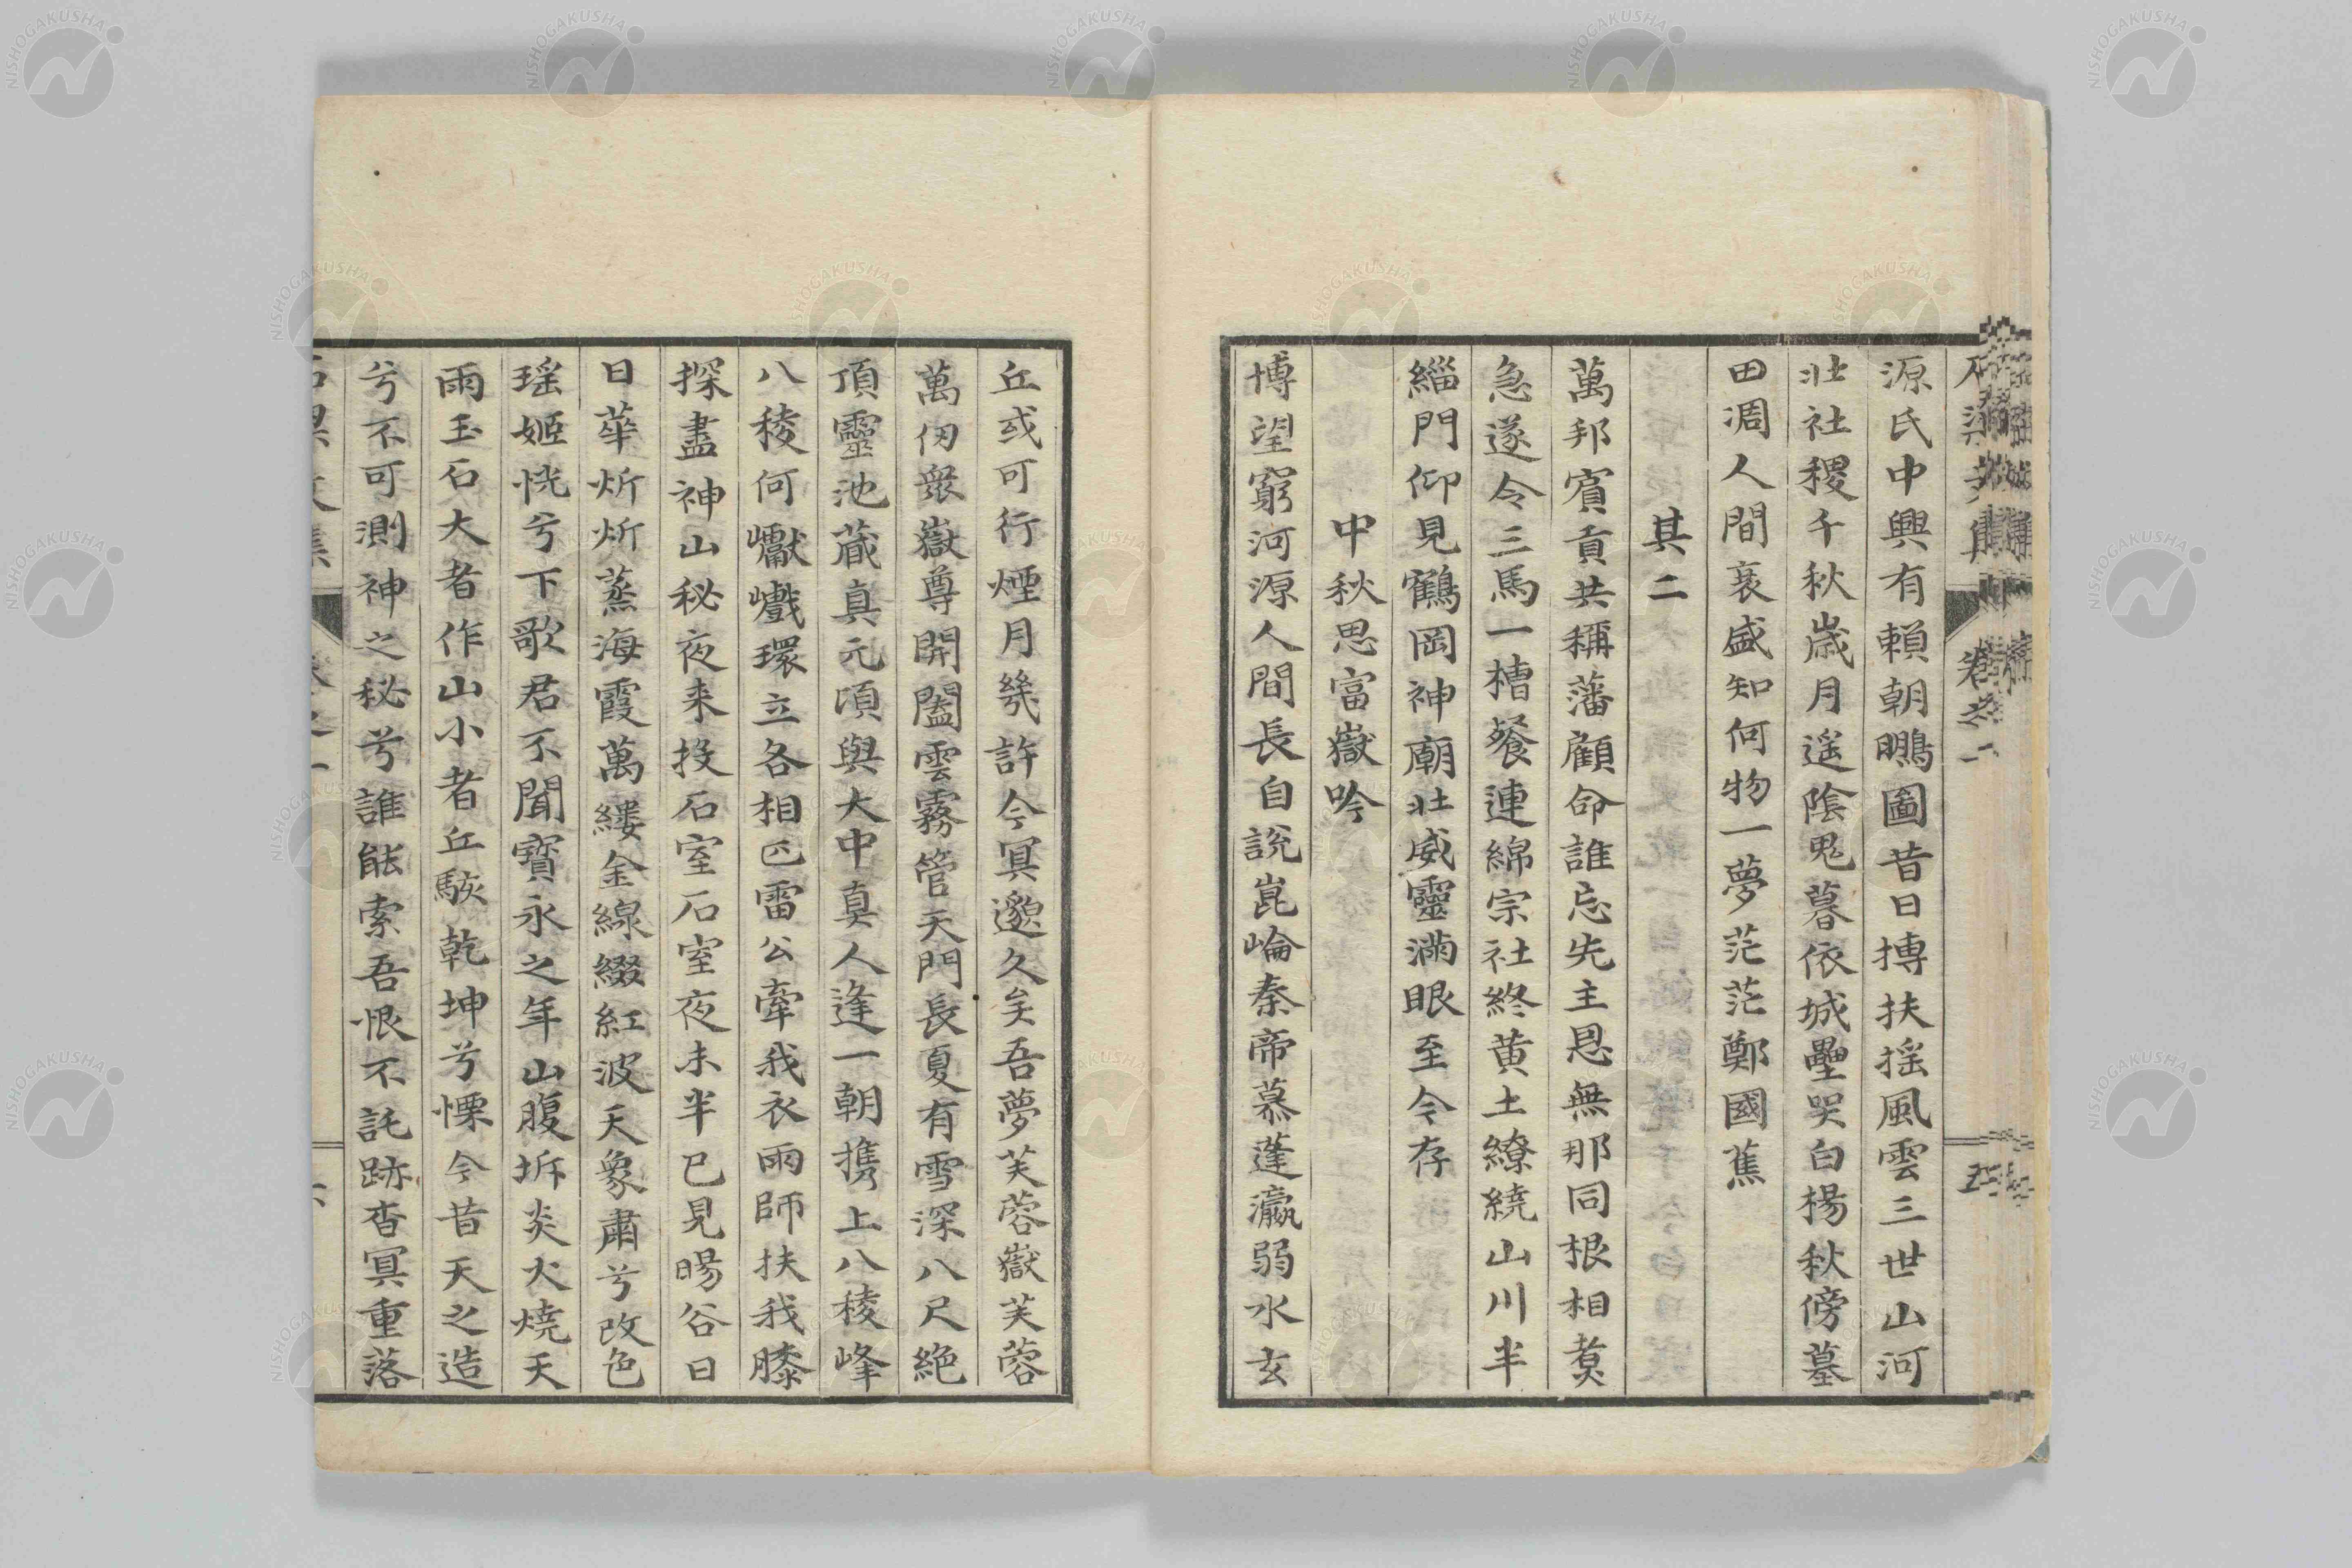 源氏中興有賴朝鵬圖昔日搏扶揺風雲三世山河
壯社稷千秋歳月遥陰鬼暮依城壘哭白楊秋傍墓
田凋人間衰盛知何物一夢茫茫鄭國蕉
其二
萬邦賓貢共稱藩顧命誰忘先主恩無那同根相萁
急遂令三馬一槽餐連綿宗社終黄土繚繞山川半
緇門仰見鶴岡神廟壯威靈滿眼至今存
中秋思富嶽吟
博望窮河源人間長自説崑崘秦帝慕蓬瀛弱水玄
丘或可行煙月幾許今冥邈久矣吾夢芙蓉嶽芙蓉
萬仞衆嶽尊開闔雲霧管天門長夏有雪深八尺絶
頂靈池蔵真元頃與大中真人逢一朝携上八稜峰
八稜何巘巇環立各相匹雷公牽我衣雨師扶我膝
探盡神山秘夜来投石室石室夜未半已見暘谷日
日華炘炘蒸海霞萬縷金線綴紅波天象肅兮改色
瑶姫恍兮下歌君不聞寶永之年山腹坼炎火燒天
雨玉石大者作山小者丘駭乾坤兮慄今昔天之造
兮不可測神之秘兮誰能索吾恨不託跡杳冥重落
卷之一
五
NISHOGAKUSHA